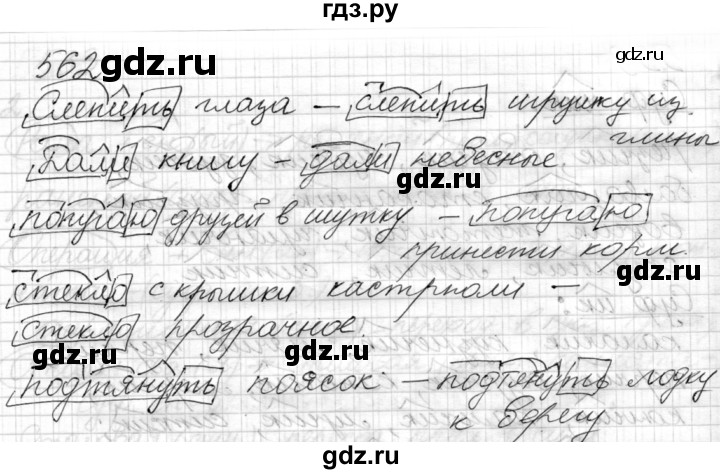 гдз.ру
562
gdz.ru
gdz.ru
Слепить глаза – слепить игрушку из
глины
gdz.ru
Дали книгу – дали небесные.
gdz.ru
попугаю друзей в шутку – попугаю
gdz.ru
принести корм.
стекло с крышки кастрюли –
стекло прозрачное.
gdz.ru
gdz.ru
подтянуть поясок – подтянуть лодку
к берегу
gdz.ru
gdz.ru